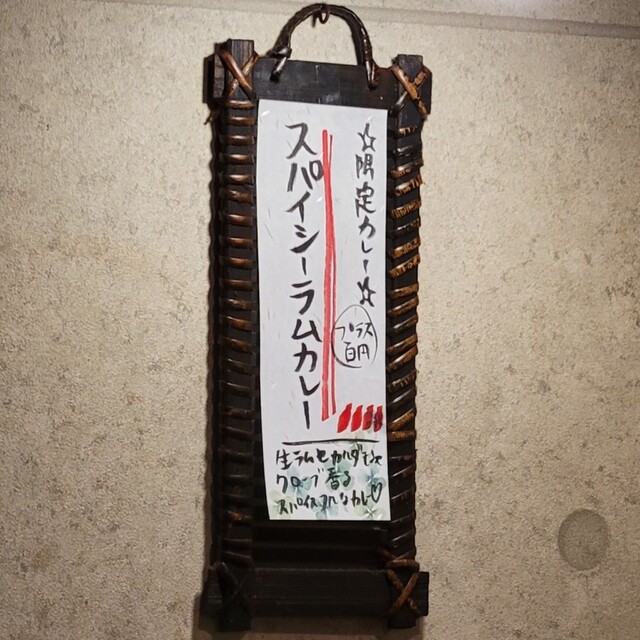 ☆限定カレー☆
プラス
百円
スパイシーラムカレー
生ラムとカルダモン
クローブ香る
スパイスフルなカレー♡